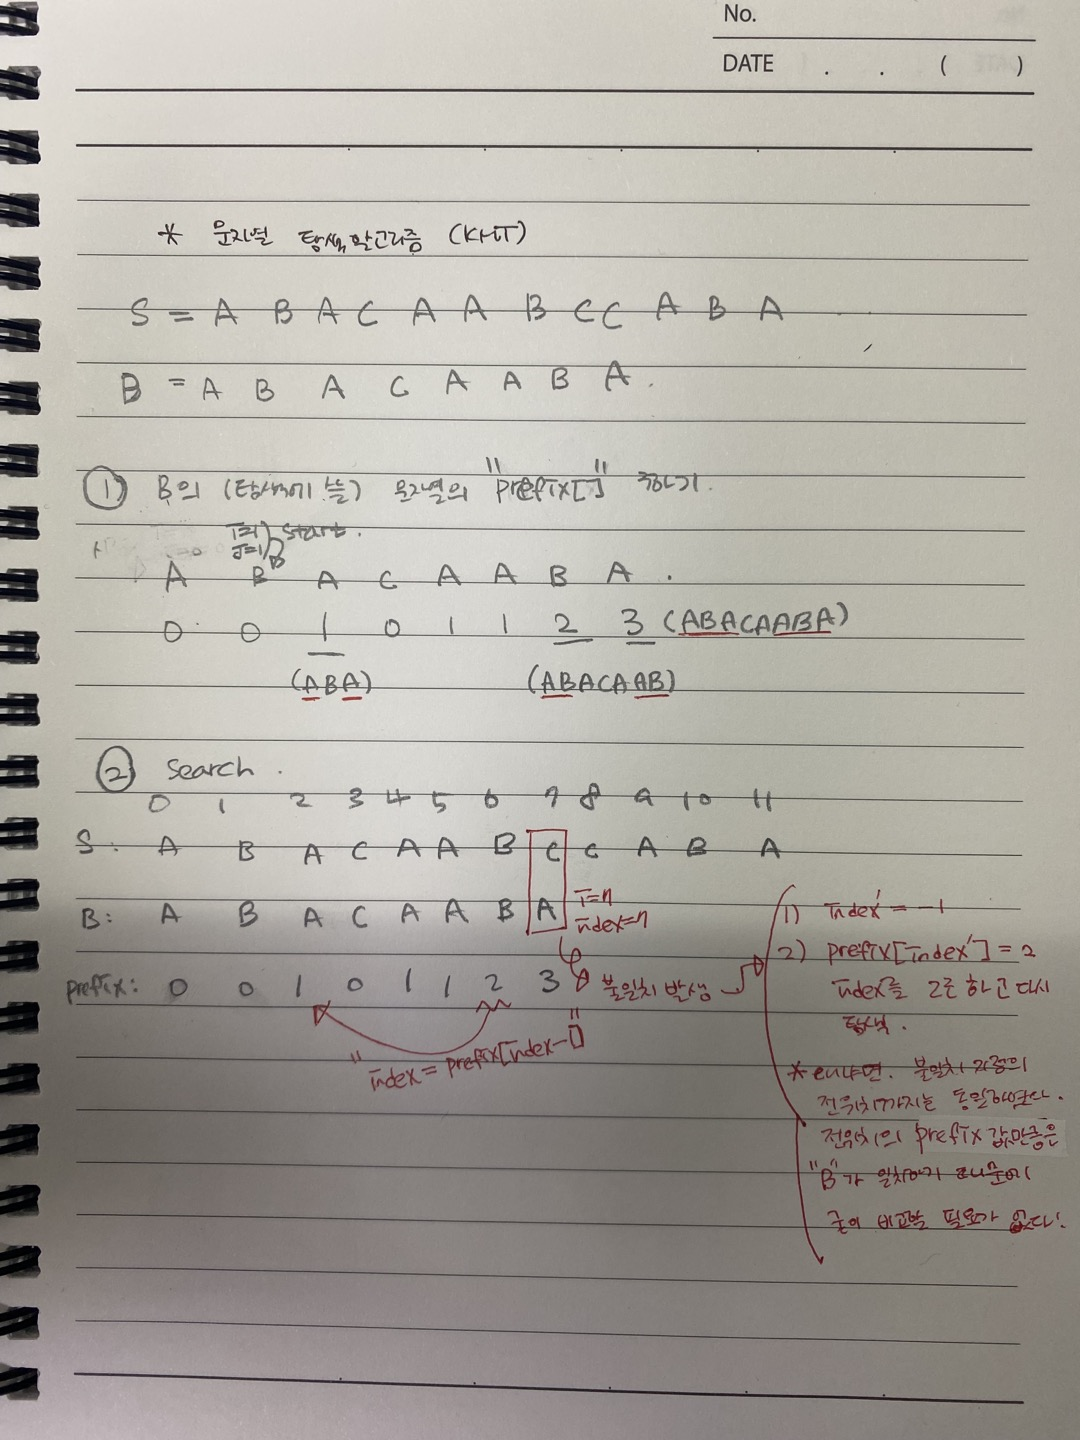 No.
DATE . . ( )
* 문자열 탐색 알고리즘 (KMT)
S = A B A C A A B C C A B A
B = A B A C A A B A .
① B의 (탐색에 쓸) 문자열의 "Prefix[]" 구하기.
i=1 start.
j=1
A B A C A A B A .
0 0 1 0 1 1 2 3 (ABACAABA)
(ABA) (ABACAAB)
② Search .
0 1 2 3 4 5 6 7 8 9 10 11
S: A B A C A A B C C A B A
B: A B A C A A B A
i=7
index=7
prefix: 0 0 1 0 1 1 2 3
불일치 발생
"index = prefix[index-1]"
1) index' = -1
2) prefix[index'] = 2
index를 2로 하고 다시
탐색.
* 왜냐면. 불일치 지점의
전위치까지는 동일하였다.
전위치의 prefix 값만큼은
"B"가 일치하기 때문에
굳이 비교할 필요가 없다!